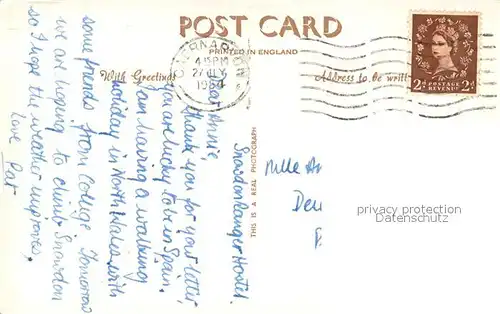 POST CARD
PRINTED IN ENGLAND
With Greetings
Address to be writt
CAERNARVON
4 15PM
27 JLY
1954
POSTAGE
REVENUE
2D 2D
THIS IS A REAL PHOTOGRAPH
Snowdon Ranger Hostel.
Dear Annie,
Thank you for your letter,
you are lucky to be in Spain.
I am having a walking
holiday in North Wales with
some friends from College. Tomorrow
we are hoping to climb Snowdon
so I hope the weather improves,
love Pat
Mlle An
privacy protection
Datenschutz